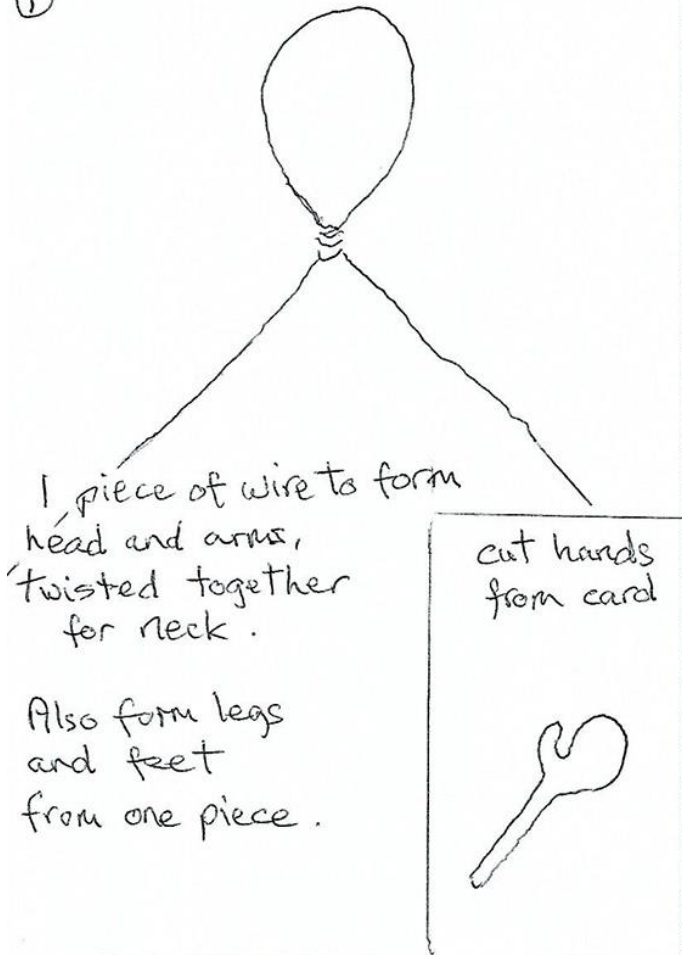 1
1 piece of wire to form
head and arms,
twisted together
for neck.
Also form legs
and feet
from one piece.
cut hands
from card